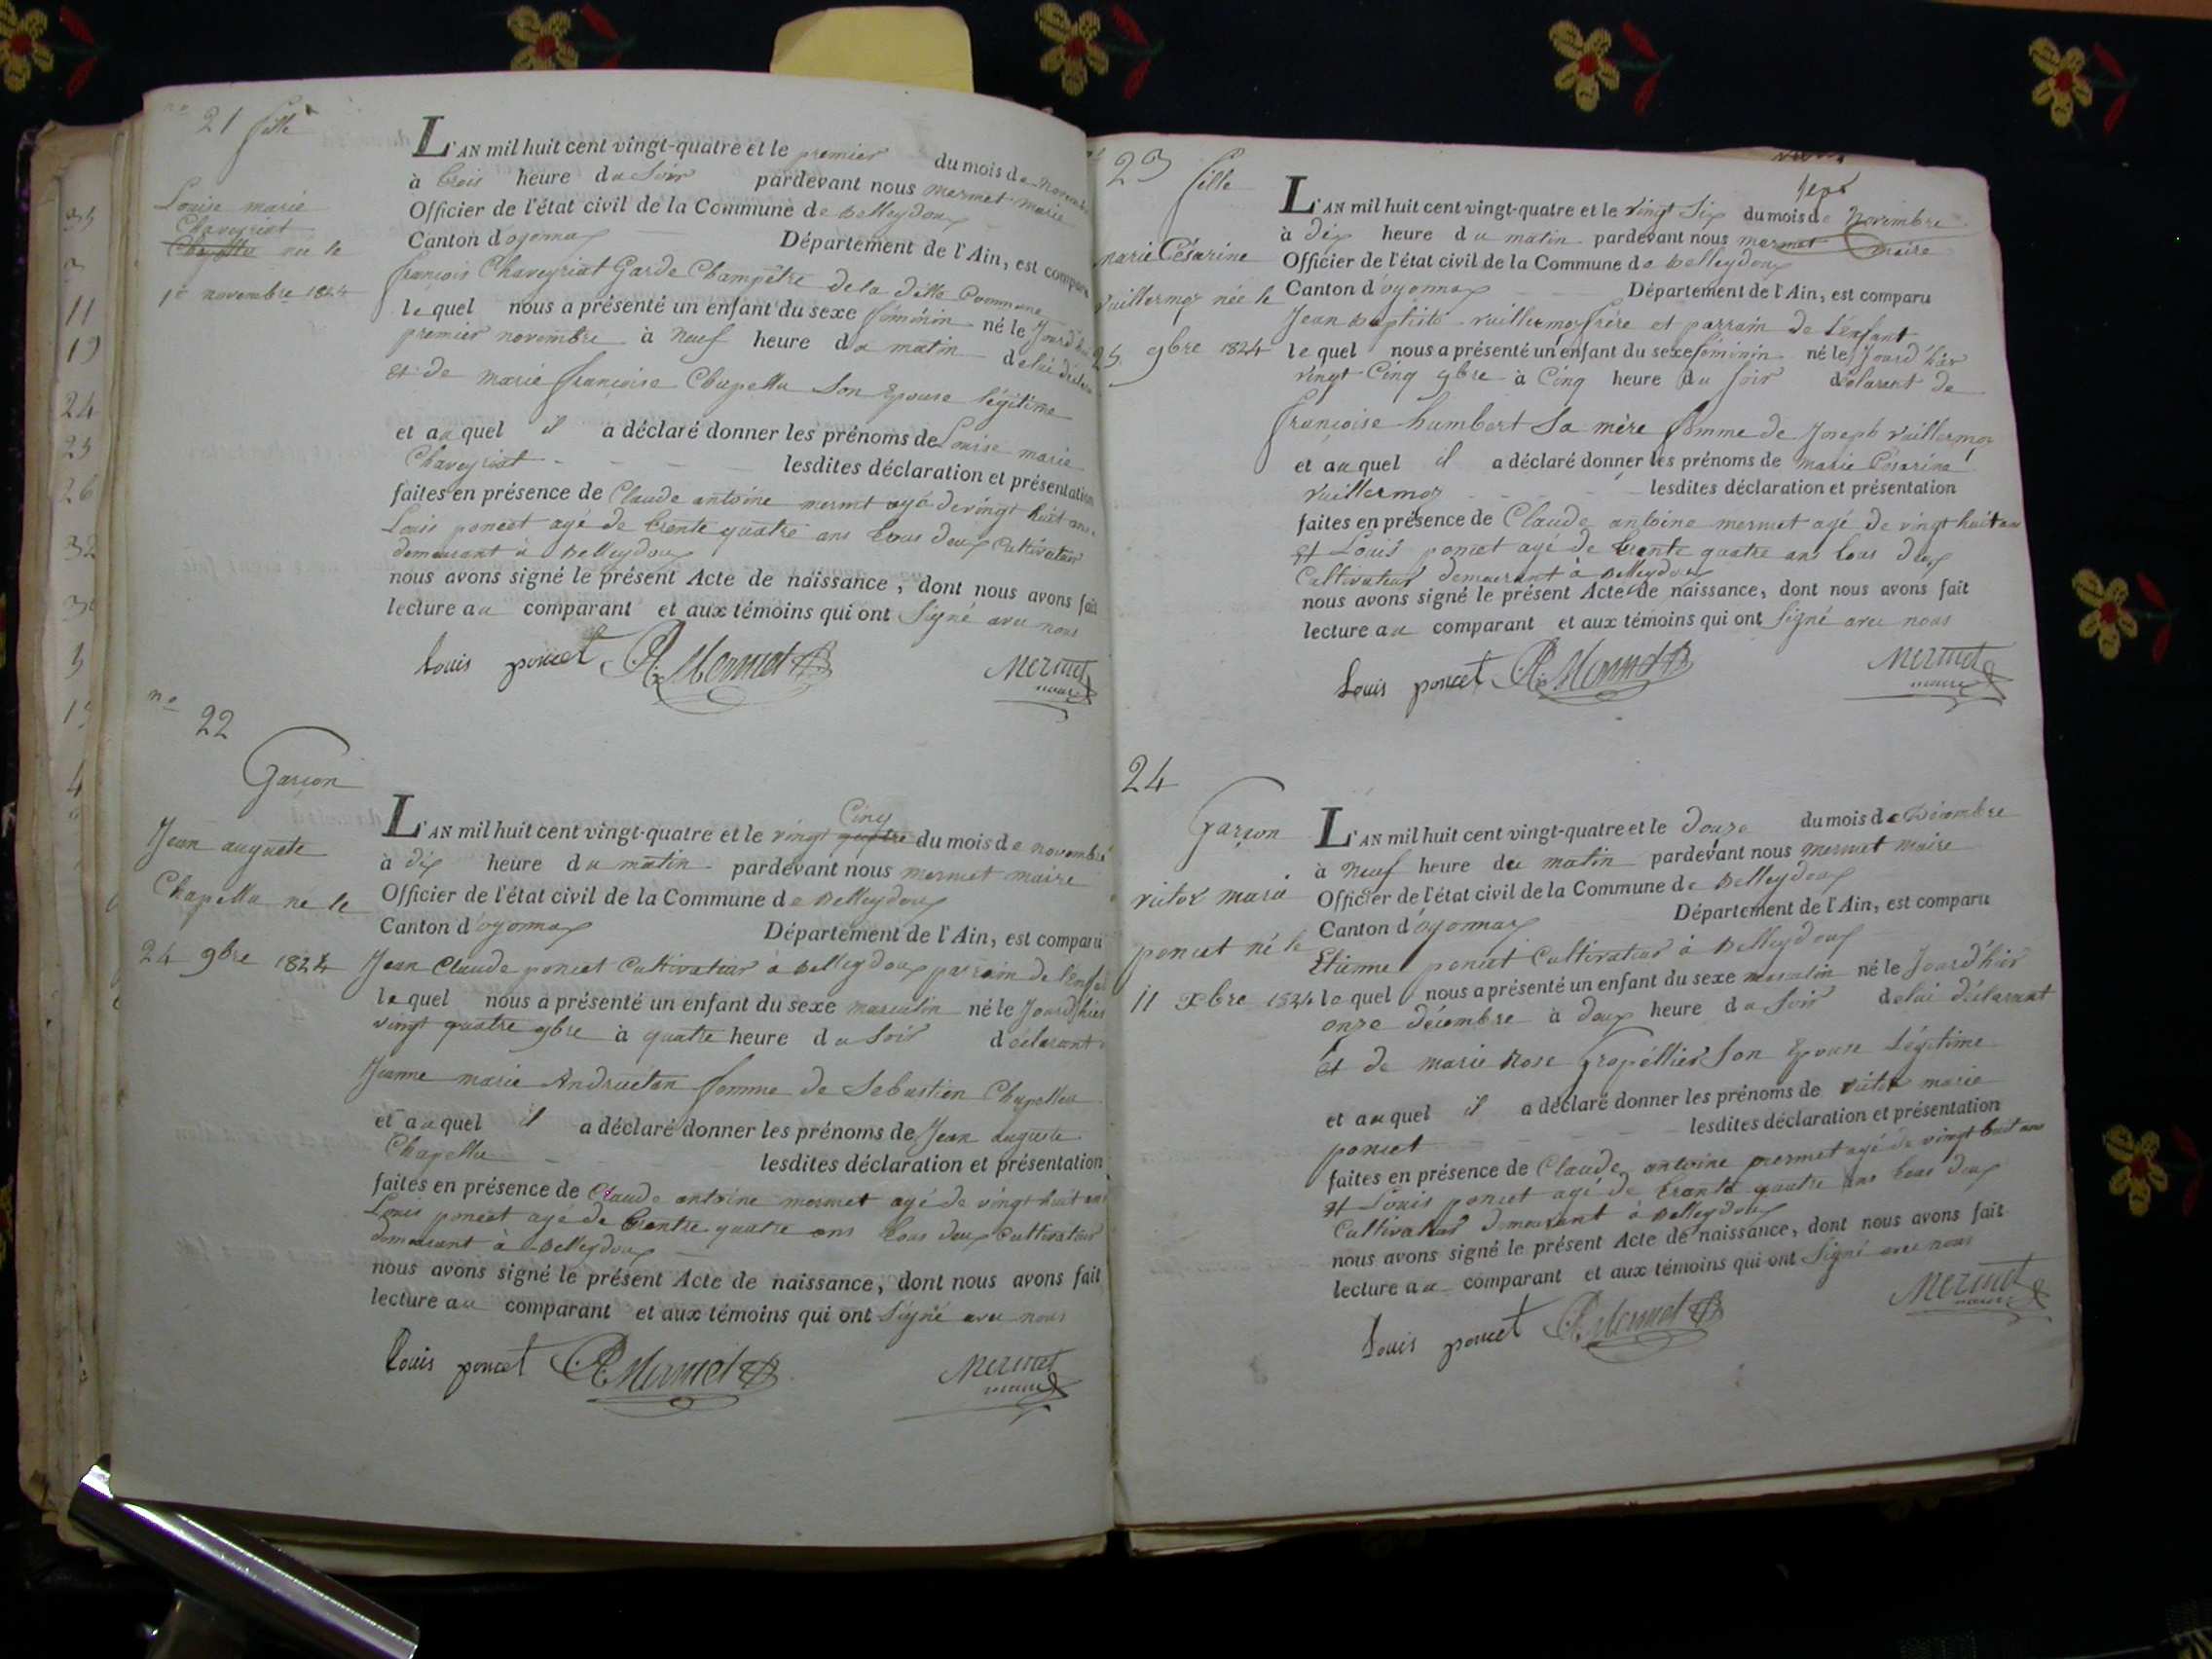 no 21 fille
Louise marie
Chaveyriat
Chapella née le
1er novembre 1824
L'AN mil huit cent vingt-quatre et le premier du mois de novembre
à trois heure du Soir pardevant nous mermet maire
Officier de l'état civil de la Commune de Belleydoux
Canton d'oyonnax Département de l'Ain, est comparu
françois Chaveyriat Garde Champêtre de la ditte Commune
lequel nous a présenté un enfant du sexe féminin né le Jourd'hui
premier novembre à neuf heure du matin de lui déclarant
et de marie françoise Chapella Son Epouse légitime
et auquel il a déclaré donner les prénoms de Louise marie
Chaveyriat lesdites déclaration et présentation
faites en présence de Claude antoine mermet agé de vingt huit ans
Louis poncet agé de trente quatre ans tous deux Cultivateur
demeurant à Belleydoux
nous avons signé le présent Acte de naissance, dont nous avons fait
lecture au comparant et aux témoins qui ont Signé avec nous
Louis poncet A. Mermet Mermet
maire
no 22
Garçon
Jean auguste
Chapella né le
24 9bre 1824
Cinq
L'AN mil huit cent vingt-quatre et le vingt quatre du mois de novembre
à dix heure du matin pardevant nous mermet maire
Officier de l'état civil de la Commune de Belleydoux
Canton d'oyonnax Département de l'Ain, est comparu
Jean Claude poncet Cultivateur à Belleydoux parrain de l'enfant
lequel nous a présenté un enfant du sexe masculin né le Jourd'hier
vingt quatre 9bre à quatre heure du Soir déclarant
Jeanne marie Andruétan femme de Sebastien Chapella
et auquel il a déclaré donner les prénoms de Jean auguste
Chapella lesdites déclaration et présentation
faites en présence de Claude antoine mermet agé de vingt huit ans
Louis poncet agé de trente quatre ans tous deux Cultivateur
demeurant à Belleydoux
nous avons signé le présent Acte de naissance, dont nous avons fait
lecture au comparant et aux témoins qui ont Signé avec nous
Louis poncet A. Mermet Mermet
maire
23 fille
marie Césarine
Vuillermoz née le
25 9bre 1824
L'AN mil huit cent vingt-quatre et le vingt Six du mois de Novembre
à dix heure du matin pardevant nous mermet maire
Officier de l'état civil de la Commune de Belleydoux
Canton d'oyonnax Département de l'Ain, est comparu
Jean Baptiste Vuillermoz frère et parrain de l'enfant
lequel nous a présenté un enfant du sexe féminin né le Jourd'hier
vingt Cinq 9bre à Cinq heure du Soir déclarant de
françoise humbert Sa mère femme de Joseph Vuillermoz
et auquel il a déclaré donner les prénoms de marie Césarine
Vuillermoz lesdites déclaration et présentation
faites en présence de Claude antoine mermet agé de vingt huit ans
et Louis poncet agé de trente quatre ans tous deux
Cultivateur demeurant à Belleydoux
nous avons signé le présent Acte de naissance, dont nous avons fait
lecture au comparant et aux témoins qui ont Signé avec nous
Louis poncet A. Mermet Mermet
maire
24
Garçon
victor marie
poncet né le
11 Xbre 1824
L'AN mil huit cent vingt-quatre et le douze du mois de Décembre
à neuf heure du matin pardevant nous mermet maire
Officier de l'état civil de la Commune de Belleydoux
Canton d'oyonnax Département de l'Ain, est comparu
Etienne poncet Cultivateur à Belleydoux
lequel nous a présenté un enfant du sexe masculin né le Jourd'hier
onze décembre à deux heure du Soir de lui déclarant
et de marie Rose Gropéllier Son Epouse Légitime
et auquel il a déclaré donner les prénoms de victor marie
poncet lesdites déclaration et présentation
faites en présence de Claude antoine mermet agé de vingt huit ans
et Louis poncet agé de trente quatre ans tous deux
Cultivateur demeurant à Belleydoux
nous avons signé le présent Acte de naissance, dont nous avons fait
lecture au comparant et aux témoins qui ont Signé avec nous
Louis poncet A. Mermet Mermet
maire